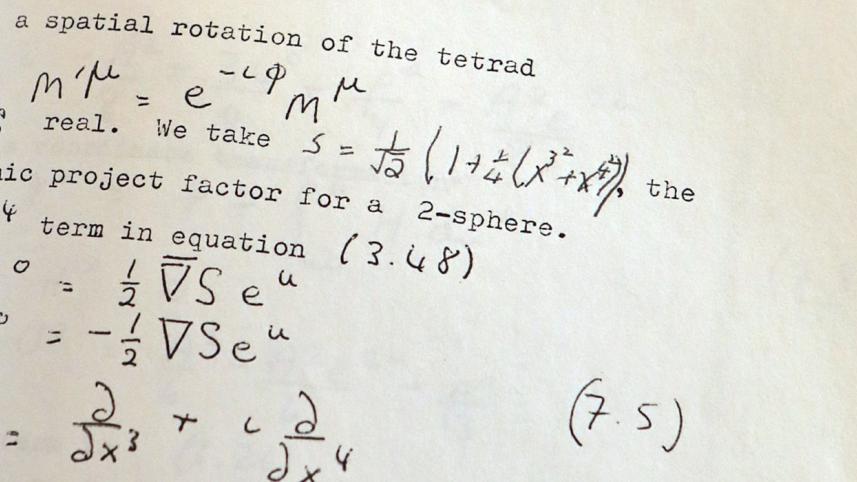 a spatial rotation of the tetrad
m'^μ = e^{-iφ} m^μ
real. We take S = 1/√2 (1+1/4(x^{3^2}+x^{4^2})), the
ic project factor for a 2-sphere.
4 term in equation (3.48)
o = 1/2 ∇̅S e^u
o = -1/2 ∇S e^u
= ∂/∂x^3 + i ∂/∂x^4 (7.5)